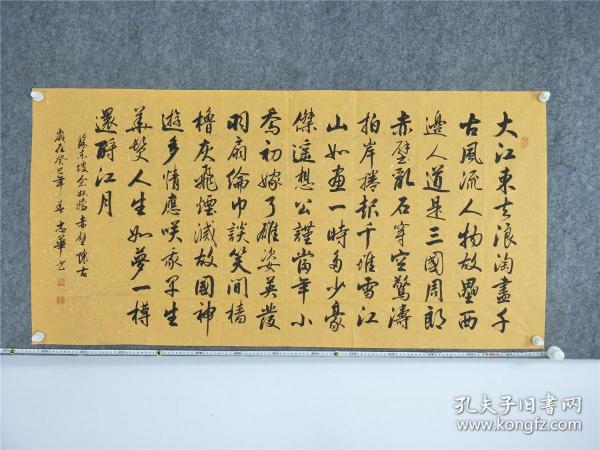 大江東去浪淘盡千
古風流人物故壘西
邊人道是三國周郎
赤壁亂石穿空驚濤
拍岸捲起千堆雪江
山如畫一時多少豪
傑遥想公謹當年小
喬初嫁了雄姿英發
羽扇倫巾談笑間檣
櫓灰飛煙滅故國神
遊多情應咲我早生
華髮人生如夢一樽
還酹江月
蘇東坡念奴嬌赤壁懷古
歲在癸巳年 志華書
孔夫子旧书网
www.kongfz.com